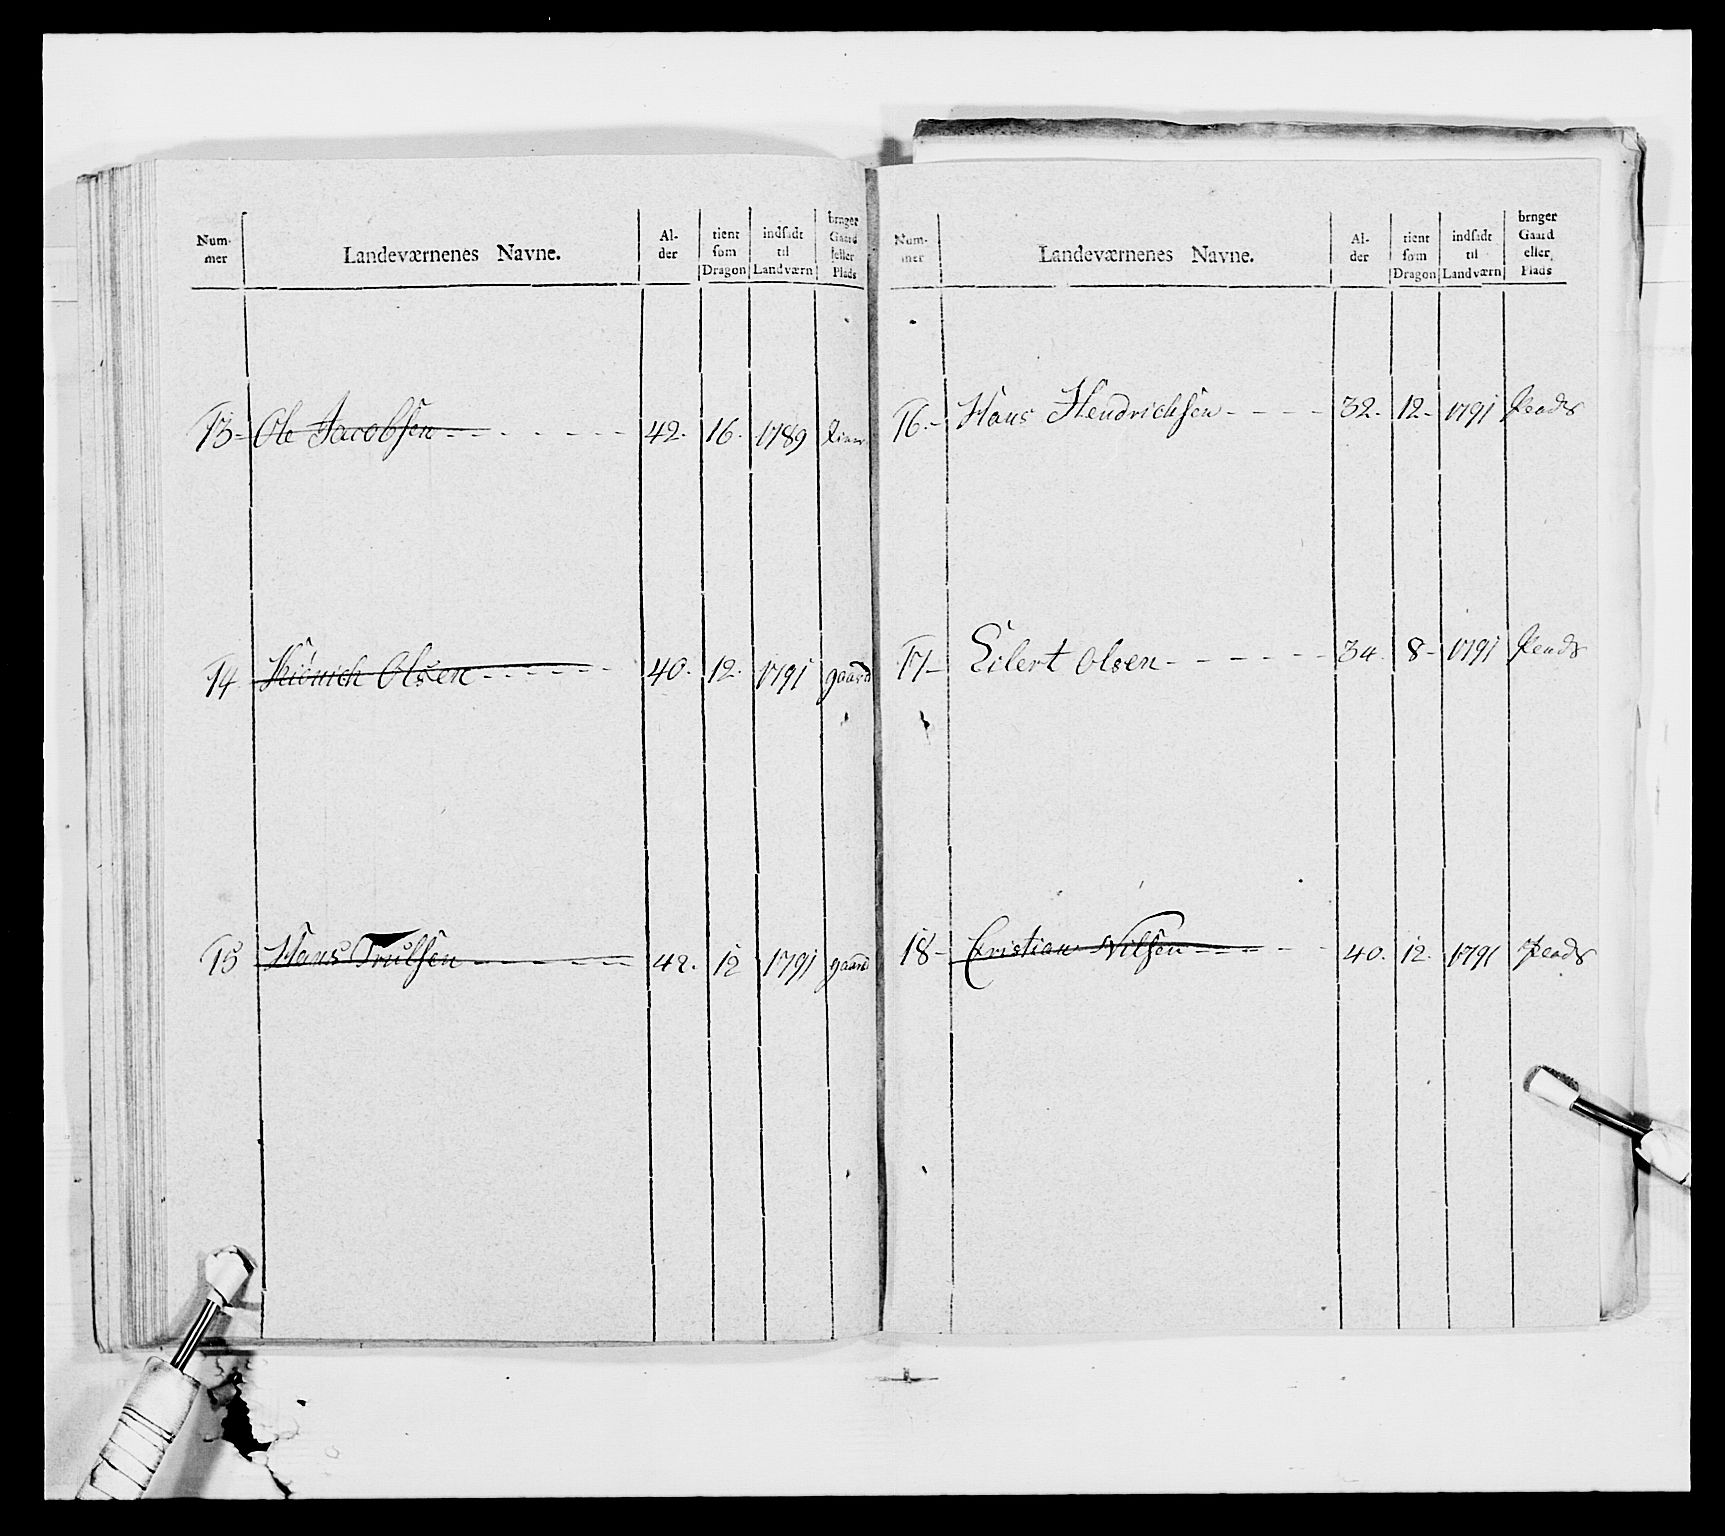 Num-
mer
Landeværnenes Navne.
Al-
der
tient
som
Dragon
indsadt
til
Landværn
bruger
Gaard
eller
Plads
13- Ole Jacobsen 42. 16. 1789
14 Olsen 40. 12. 1791 gaard
15 Hans Trulsen 42. 12 1791 gaard
Num-
mer
Landeværnenes Navne.
Al-
der
tient
som
Dragon
indsadt
til
Landværn
bruger
Gaard
eller
Plads
16.- Hans Hendrichsen 32. 12- 1791 Plads
17- Eilert Olsen 34. 8- 1791 Plads
18- Cristian Nilsen 40. 12. 1791 Plads